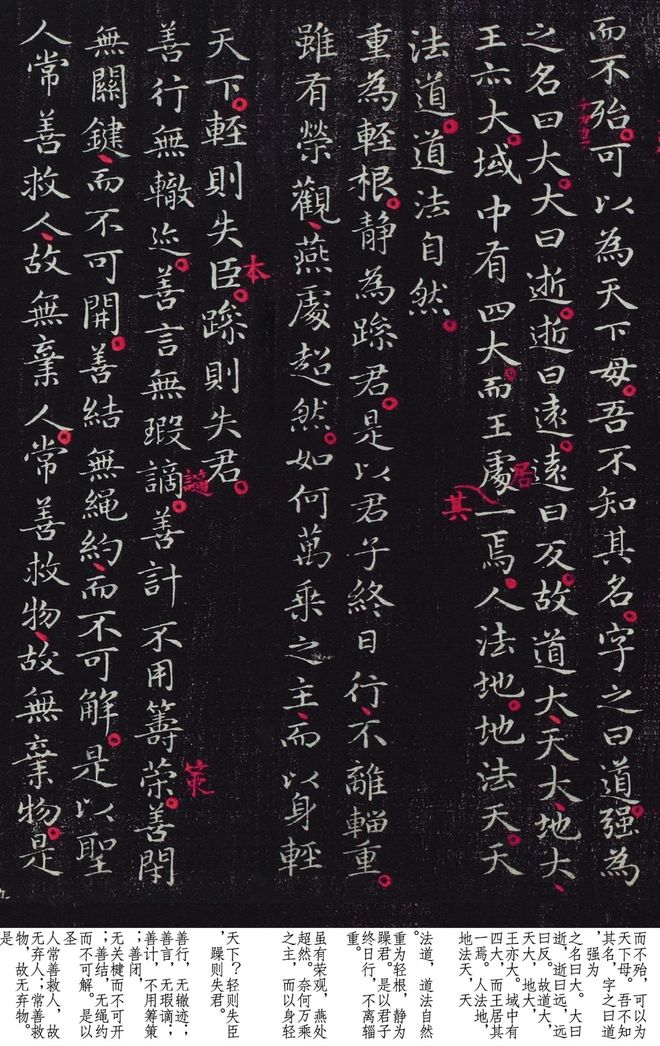 而不殆可以為天下母吾不知其名字之曰道强為
之名曰大大曰逝逝曰遠遠曰反故道大天大地大
王亦大域中有四大而王處一焉人法地地法天天
法道道法自然
重為輕根静為躁君是以君子終日行不離輜重
雖有榮觀燕處超然如何萬乘之主而以身輕
天下輕則失臣躁則失君
善行無轍迹善言無瑕謫善計不用籌䇿善閇
無關鍵而不可開善結無繩約而不可解是以聖
人常善救人故無棄人常善救物故無棄物是
居
其
本
謫
策
九
而不殆，可以为
天下母。吾不知
其名，字之曰道
，强为
之名曰大。大曰
逝，逝曰远，远
曰反。故道大，
天大，地大，
王亦大。域中有
四大，而王居其
一焉。人法地，
地法天，天
法道，道法自然
。
重为轻根，静为
躁君。是以君子
终日行，不离辎
重。
虽有荣观，燕处
超然。奈何万乘
之主，而以身轻
天下？轻则失臣
，躁则失君。
善行，无辙迹；
善言，无瑕谪；
善计，不用筹策
；善闭，
无关楗而不可开
；善结，无绳约
而不可解。是以
圣
人常善救人，故
无弃人；常善救
物，故无弃物。
是